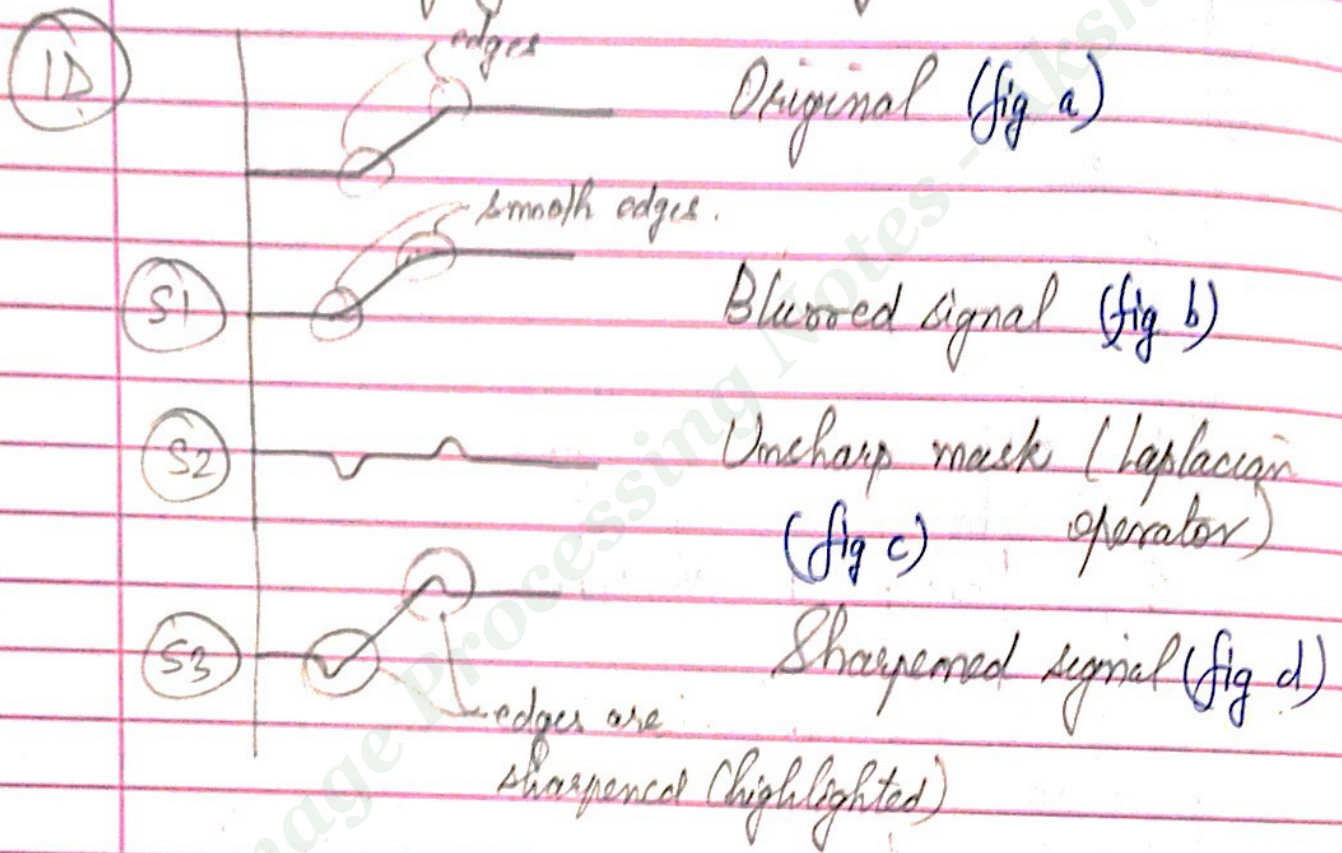 1D
edges
Original (fig a)
smooth edges.
S1
Blurred signal (fig b)
S2
Unsharp mask (Laplacian
(fig c) operator)
S3
Sharpened signal (fig d)
edges are
sharpened (highlighted)
Image Processing Notes -